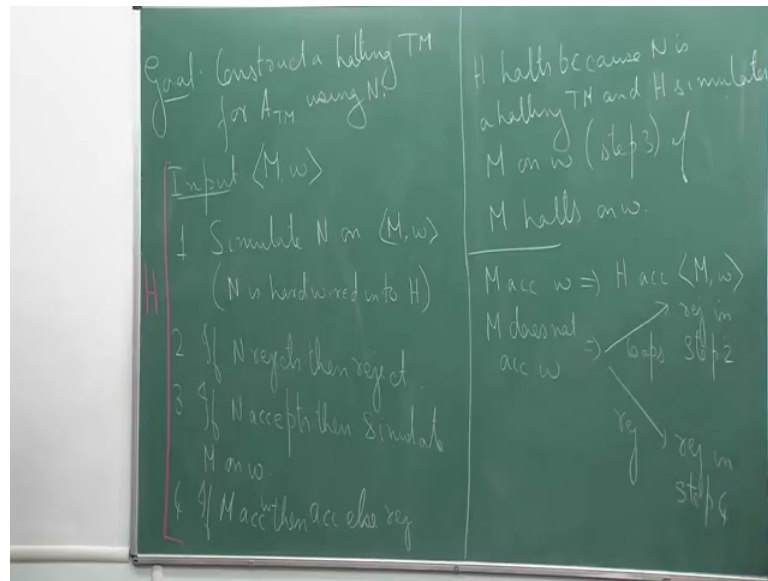 Goal: Construct a halting TM
for A_TM using N.
Input ⟨M, w⟩
H
1 Simulate N on ⟨M, w⟩
(N is hardwired into H)
2 If N rejects then reject.
3 If N accepts then simulate
M on w.
4 If M acc w then acc else rej
H halts because N is
a halting TM and H simulates
M on w (step 3) if
M halts on w.
M acc w ⇒ H acc ⟨M, w⟩
M does not
acc w ⇒
loops
rej in
step 2
rej
rej in
step 4